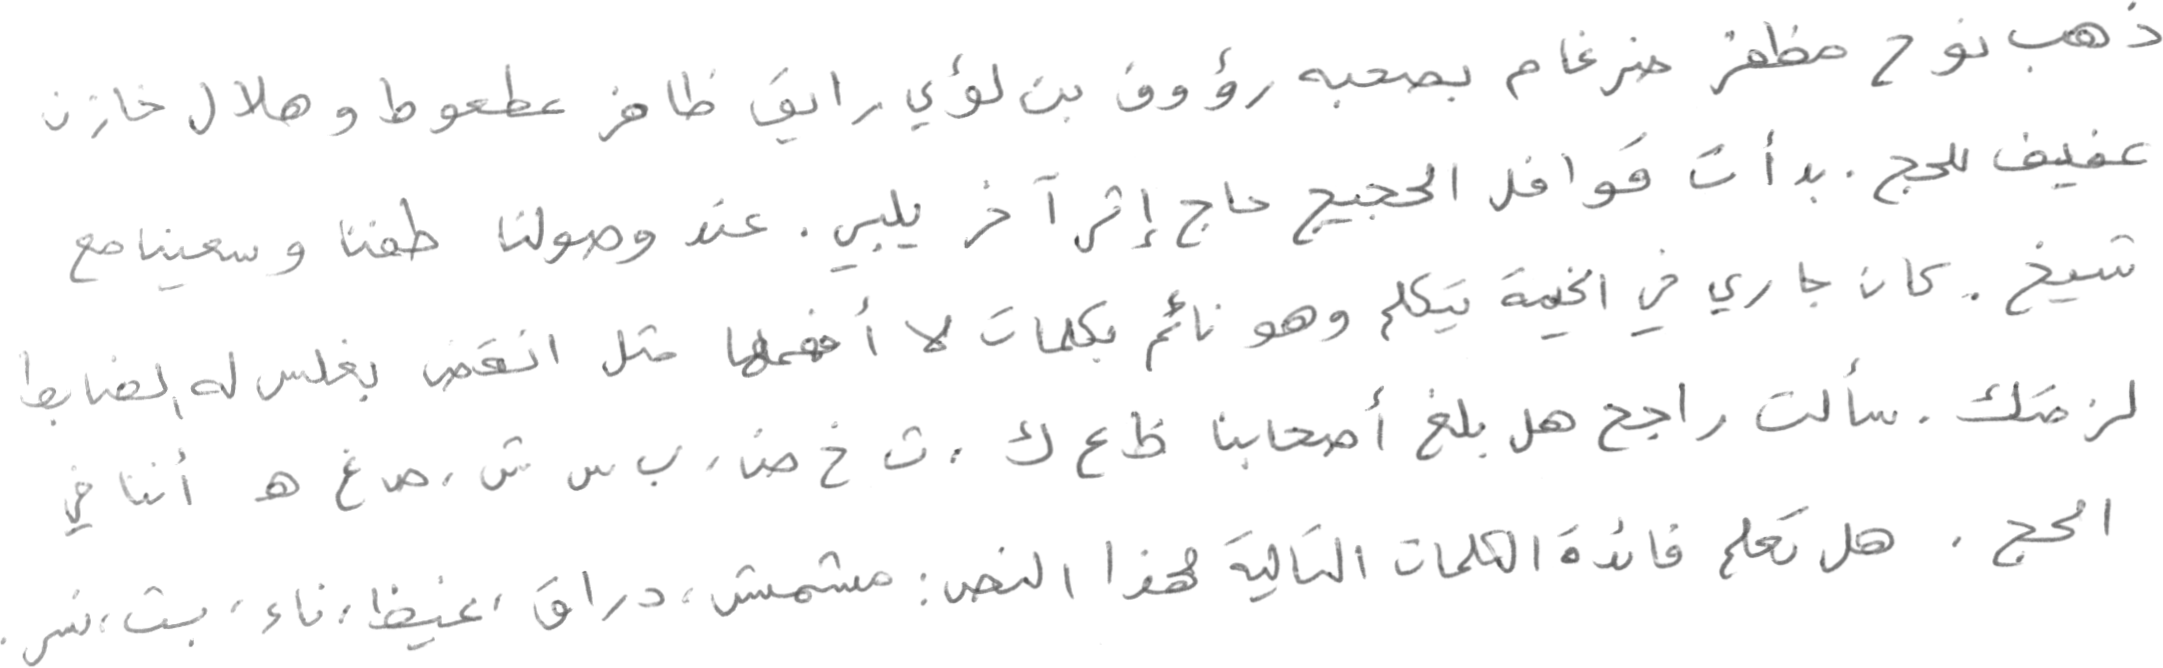 ذهب نوح مظفر ضرغام بصحبه رؤوف بن لؤي رايق ظافر عطعوط وهلال خازن
عفيف للحج. بدأت قوافل الحجيج حاج إثر آخر يلبي. عند وصولنا طفنا وسعينا مع
شيخ. كان جاري في الخيمة يتكلم وهو نائم بكلمات لا أفهمها مثل انقض بغلس له الضابط
لزضك. سألت راجح هل بلغ أصحابنا ظ ع ك، ث خ ض، ب س ش، ص غ هـ أننا في
الحج. هل تعلم فائدة الكلمات التالية لهذا النص: مشمش، دراق، غيظ، ناء، بت، نسر.